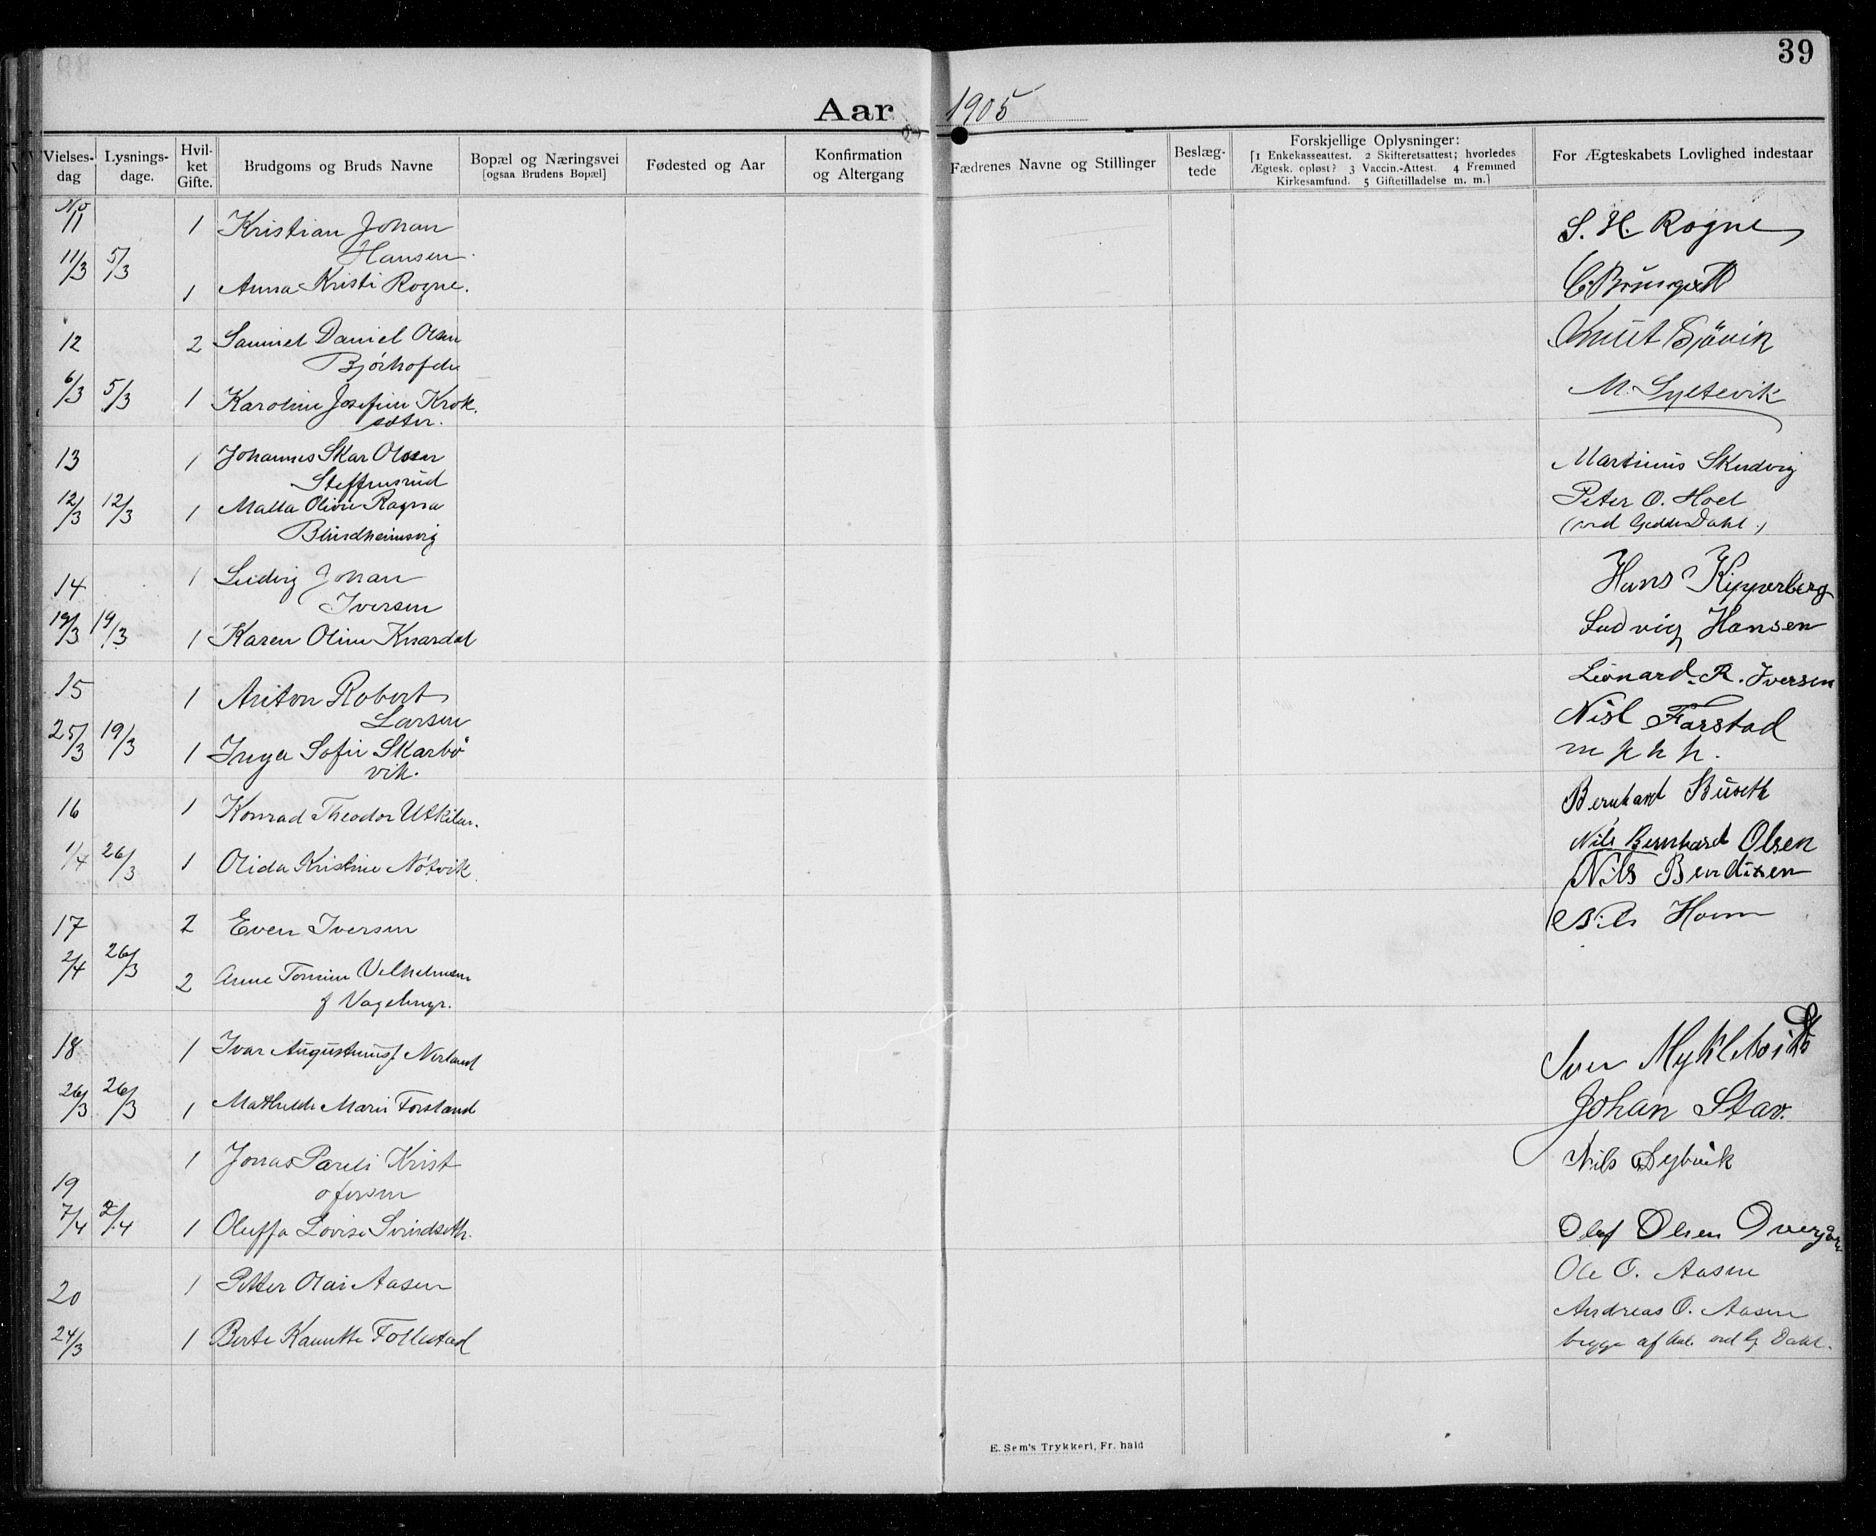 39
Aar 1905
Vielses-dag
Lysnings-dage.
Hvil-ket Gifte.
Brudgoms og Bruds Navne
Bopæl og Næringsvei
[ogsaa Brudens Bopæl]
Fødested og Aar
Konfirmation og Altergang
Fædrenes Navne og Stillinger
Beslæg-tede
Forskjellige Oplysninger:
[1 Enkekasseattest. 2 Skifteretsattest; hvorledes
Ægtesk. opløst? 3 Vaccin.-Attest. 4 Fremmed
Kirkesamfund. 5 Giftetilladelse m. m.]
For Ægteskabets Lovlighed indestaar
No
11 1 Kristian Johan S. H. Rogne
11/3 5/3 Hansen.
1 Anna Kristi Rogne.
12 2 Samuel Daniel Olsen Knut Sjövik
Bjørhofde
6/3 5/3 1 Karoline Josefine Krok- M. Syltevik
sæter.
13 1 Johannes Skar Olsen Martinus Skudvig
Steffensrud
12/3 12/3 1 Malla Olivie Ragna Peter O. Hoel
Blindheimsvig (ved Gedde Dahl.)
14 1 Ludvig Johan Hans Kipperberg
Iversen
19/3 19/3 1 Karen Oline Knardal Ludvig Hansen
15 1 Anton Robert Leonard R. Iversen
Larsen Nisl Farstad
25/3 19/3 1 Inga Sofie Skarbö m p h p.
vik.
16 1 Konrad Theodor Utkilen. Bernhard Buseth
Nils Bernhard Olsen
1/4 26/3 1 Olida Kristine Nötvik. Nils Bendixen
17 2 Even Iversen Nils Hovm
2/4 26/3 2 Anne Tomine Velhelmsen
f Vagelmyr.
18 1 Ivar Augustinusf Nerland Iver Myklebost
26/3 26/3 1 Mathilde Marie Forstand Johan Stav.
1 Jonas Pareli Krist Nils Dybvik
19 ofersen
7/4 2/4 1 Oluffa Lovise Svindseth. Olaf Olsen
20 1 Petter Olai Aasen Ole O. Aasen
Andreas O. Aasen
24/3 1 Berte Kanutte Follestad begge af Aal. ved G. Dahl.
E. Sem's Trykkeri, Fr.hald